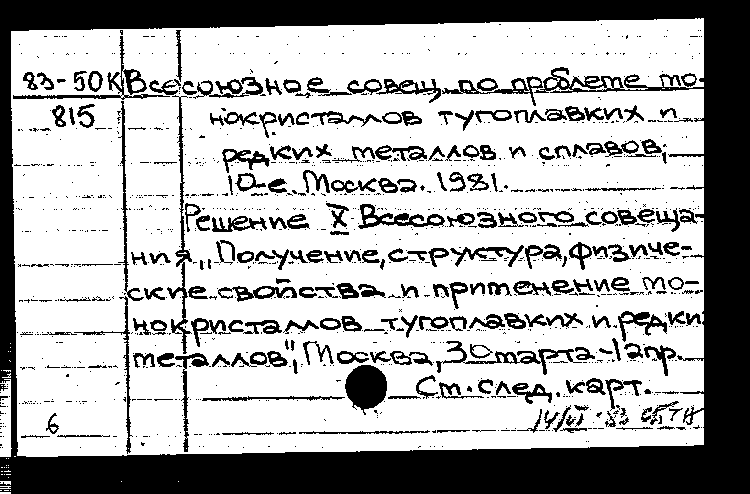 83-50К Всесоюзное совещ. по проблеме мо-
815 нокристаллов тугоплавких и
редких металлов и сплавов,
10-е. Москва. 1981.
Решение X Всесоюзного совеща-
ния „Получение, структура, физиче-
ские свойства и применение мо-
нокристаллов тугоплавких и редких
металлов", Москва, 30 марта-1 апр.
См. след. карт.
6